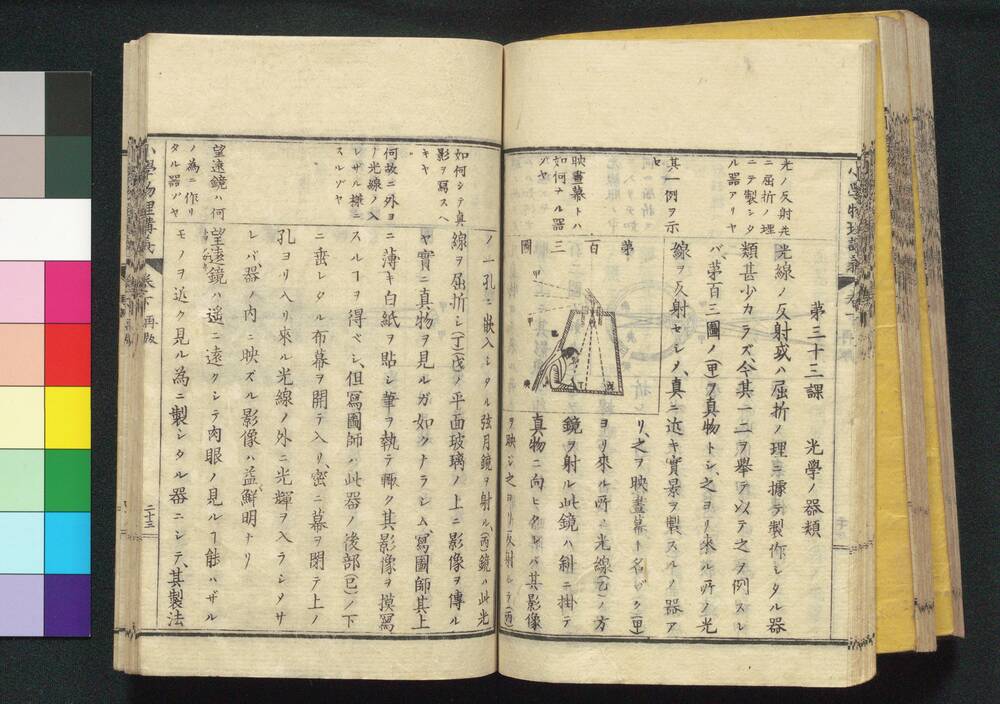 第三十三課　光學ノ器類
光線ノ反射或ハ屈折ノ理ニ據テ製作シタル器
類甚少カラズ、今其一二ヲ擧テ以テ之ヲ例スレ
バ、第百三圖ノ(甲)ヲ真物トシ、之ヨリ來ル所ノ光
線ヲ反射セシメ、真ニ近キ實景ヲ製スルノ器ア
リ、之ヲ映畫幕ト名ヅク、(甲)
ヨリ來ル所ノ光線(乙)ノ方
鏡ヲ射ル此鏡ハ斜ニ掛テ
真物ニ向ヒタレバ其影像
ヲ映シ之ヨリ反射シテ(丙)
第百三圖
光ノ反射及
ニ屈折ノ理
ニテ製シタ
ル器アリヤ
其一例ヲ示
セ
映畫幕トハ
如何ナル器
ゾヤ
ノ一孔ニ嵌入シタル弦月鏡ヲ射ル、(丙)鏡ハ此光
線ヲ屈折シ(丁)(戊)ノ平面玻璃ノ上ニ影像ヲ傳ル
ヤ實ニ真物ヲ見ルガ如クナラシム、寫圖師其上
ニ薄キ白紙ヲ貼シ筆ヲ執テ輙ク其影像ヲ摸寫
スルヿヲ得ベシ、但寫圖師ハ此器ノ後部(己)ノ下
ニ垂レタル布幕ヲ開テ入リ、密ニ幕ヲ閉テ上ノ
孔ヨリ入リ來ル光線ノ外ニ光輝ヲ入ラシメサ
レバ、器ノ内ニ映ズル影像ハ益鮮明ナリ
望遠鏡ハ遙ニ遠クシテ肉眼ノ見ルヿ能ハザル
モノヲ近ク見ル為ニ製シタル器ニシテ、其製法
如何シテ真
影ヲ寫スヘ
キヤ
何故ニ外ヨ
リノ光線ノ入
レザル様ニ
スルゾヤ
望遠鏡ハ何
ノ為ニ作リ
タル器ゾヤ
小學物理講義
卷下
再版
二十三